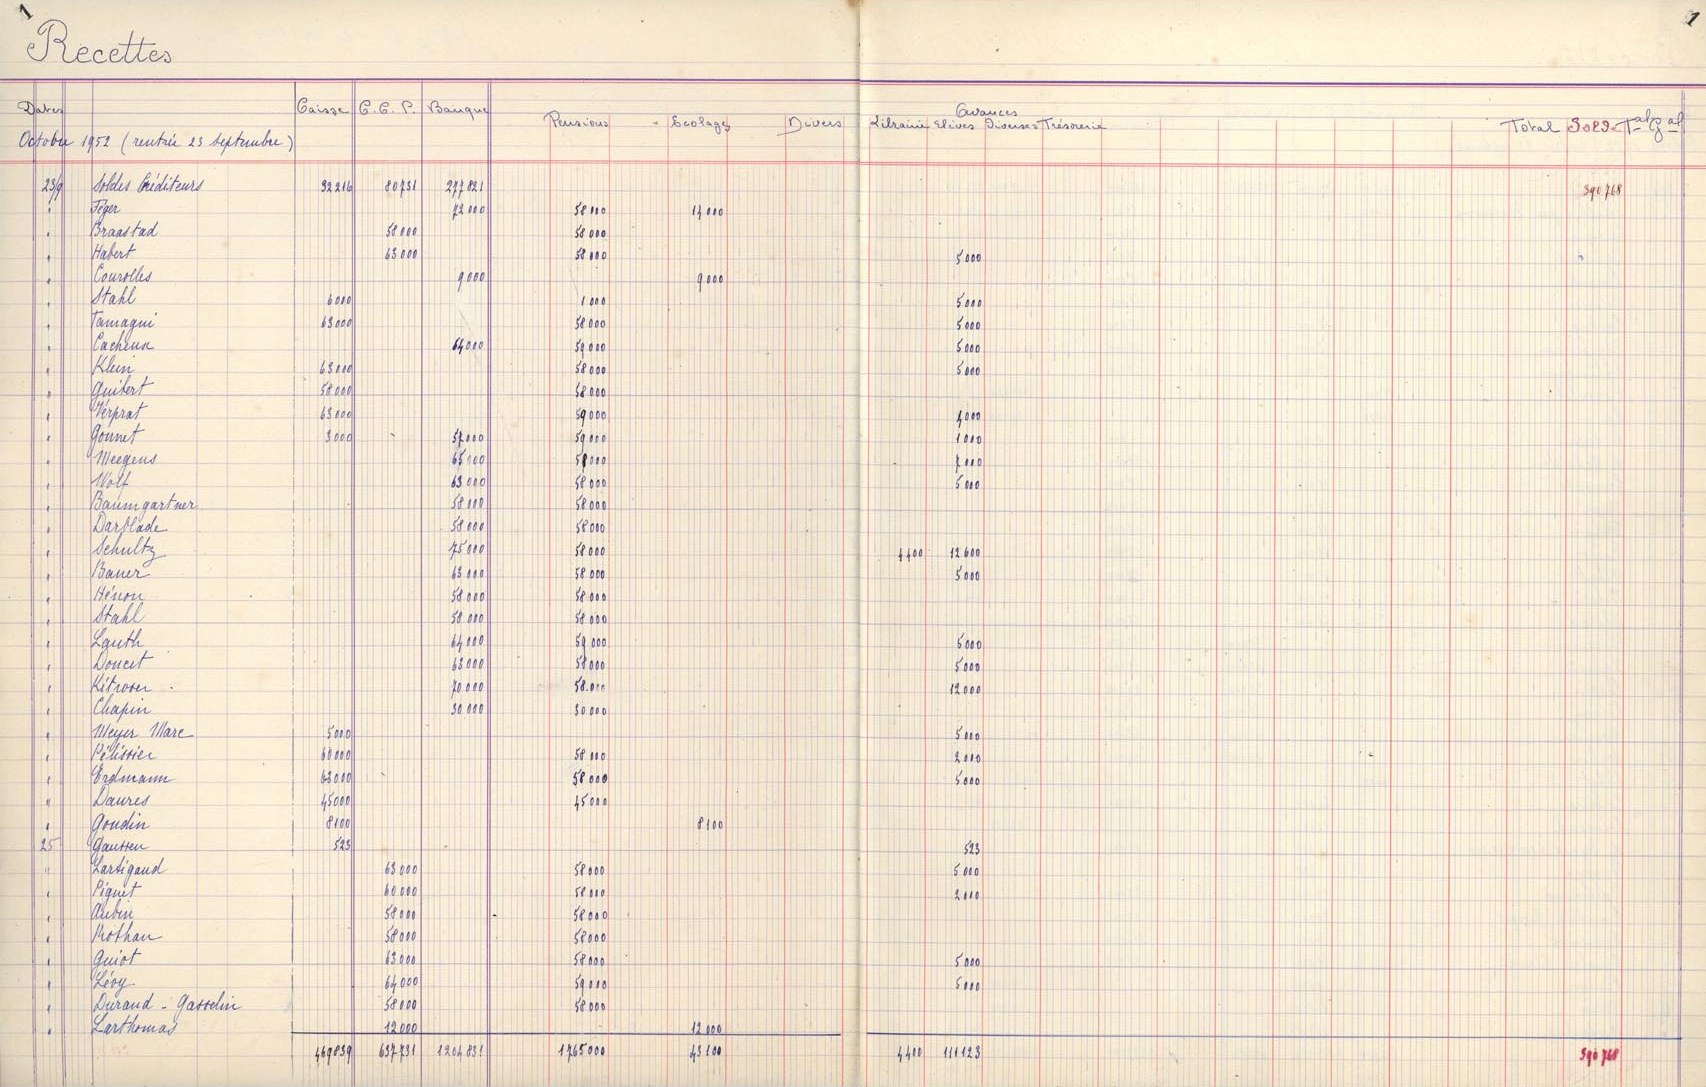 1 1
Recettes
Dates Caisse C.C.P. Banque Pensions Ecolage Divers Librairie Elèves Diverses Trésorerie Avances Total Sold. Tal Gal
Octobre 1952 (rentrée 23 septembre)
23/9 Soldes Créditeurs 32216 80731 277821 390768
" Féger 72000 58000 14000
" Braastad 58000 58000
" Habert 63000 58000 5000
" Courolles 9000 9000
" Stahl 6000 1000 5000
" Tamagni 63000 58000 5000
" Cacheux 64000 59000 5000
" Klein 63000 58000 5000
" Guibert 58000 58000
" Verprat 63000 59000 4000
" Gonnet 3000 57000 59000 1000
" Meegens 65000 58000 7000
" Wolf 63000 58000 5000
" Baumgartner 58000 58000
" Darblade 58000 58000
" Schultz 75000 58000 4400 12600
" Bauer 63000 58000 5000
" Hénon 58000 58000
" Stahl 58000 58000
" Lauth 64000 59000 5000
" Doucet 63000 58000 5000
" Kitrosser 70000 58.000 12000
" Chapin 30000 30000
" Meyer Marc 5000 5000
" Pélissier 60000 58000 2000
" Erdmann 63000 58000 5000
" Daures 45000 45000
" Goudin 8100 8100
25 Gaussen 523 523
" Lartigaud 63000 58000 5000
" Piguet 60000 58000 2000
" Aubin 58000 58000
" Rothan 58000 58000
" Guiot 63000 58000 5000
" Lévy 64000 59000 5000
" Durand - Gasselin 58000 58000
" Larthomas 12000 12000
469839 637731 1204831 1765000 43100 4400 111123 390768